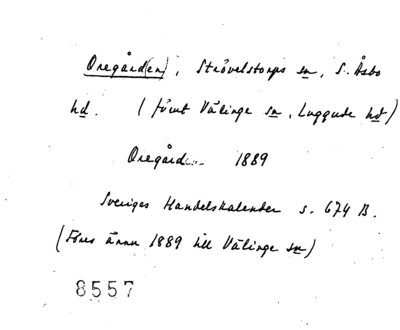 Oregård(en), Strövelstorps sn, S. Åsbo
hd. (förut Välinge sn, Luggude hd)
Oregården 1889
Sveriges Handelskalender s. 674 B.
(Föres ännu 1889 till Välinge sn)
8557